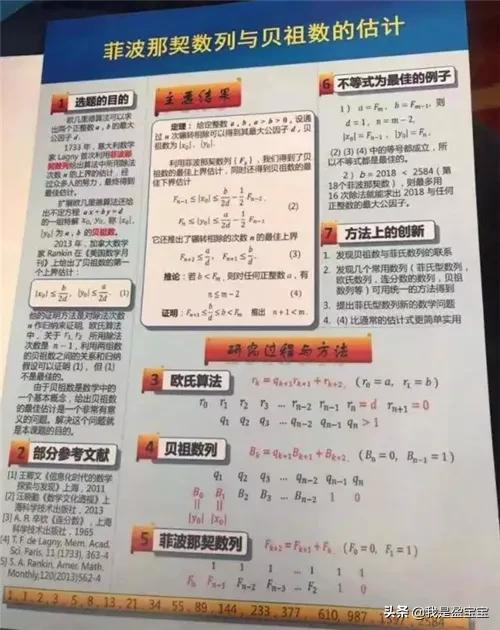 菲波那契数列与贝祖数的估计
1 选题的目的
欧几里德算法可以求
出两个正整数 a, b 的最大
公因子 d。
1733 年,意大利数学
家 Lagny 首次利用菲波那
契数列给出算法中所用除法
次数 n 的上界的估计,经
过众多人的努力,最终得到
最佳估计。
扩展欧几里德算法还给
出不定方程 ax+by=d
的一组特解 x₀, y₀, 称 |x₀|,
|y₀| 为 a, b 的贝祖数。
2013 年,加拿大数学
家 Rankin 在《美国数学月
刊》上给出了贝祖数的第一
个上界估计:
|x₀| ≤ b/2d, |y₀| ≤ a/2d. (1)
他的证明方法是对除法次数
n 作归纳来证明,欧氏算法
中,关于 r₁, r₂ 所用除法
次数是 n − 1, 利用两组数
的贝祖数之间的关系和归纳
假设可以证明 (1), 但 (1)
不是最佳的。
由于贝祖数是数学中的
一个基本概念,给出贝祖数
的最佳估计是一个非常有意
义的问题。解决这个问题就
是本课题的目的。
2 部分参考文献
[1] 王元《信息化时代的数学
探索与发现》上海,2011
[2] 汪晓勤《数学文化透视》上
海科学技术出版社,2013
[3] A. Я. 辛钦《连分数》,上海
科学技术出版社,1965
[4] T. F. de Lagny, Mem. Acad.
Sci. Paris, 11 (1733), 363-4
[5] S. A. Rankin, Amer. Math.
Monthly,120(2013)562-4
主要结果
定理:给定整数 a, b, a > b > 0, 设通
过 n 次辗转相除可以得到其最大公因子 d, 贝
祖数为 |x₀|, |y₀|.
利用菲波那契数列 {Fₙ}, 我们得到了贝
祖数的最佳上界估计,同时还得到贝祖数的最
佳下界估计
Fₙ₋₁ ≤ |x₀| ≤ b/2d − 1/2 Fₙ₋₂,
(2)
Fₙ ≤ |y₀| ≤ a/2d − 1/2 Fₙ₋₁.
它还推出了辗转相除的次数 n 的最佳上界
Fₙ₊₂ ≤ a/d, Fₙ₊₁ ≤ b/d. (3)
推论:若 b < Fₘ, 则对任何正整数 a, 有
n ≤ m − 2 (4)
证明:Fₙ₊₁ ≤ b/d ≤ b < Fₘ 推出 n + 1 < m.
6 不等式为最佳的例子
1) a = Fₘ, b = Fₘ₋₁, 则
d = 1, n = m − 2,
|x₀| = Fₙ₋₁, |y₀| = Fₙ.
(2) (3) (4) 中的等号都成立,所
以不等式都是最优的。
2) b = 2018 < 2584 (第
18个菲波那契数),则最多用
16 次除法就能求出 2018 与任何
正整数的最大公因子。
7 方法上的创新
1. 发现贝祖数与菲氏数列的联系
2. 发现几个常用数列(菲氏型数列,
欧氏数列,连分数的数列,贝祖
数列等)可用统一的方法得到
3. 提出菲氏型数列新的数学问题
4. (4) 比通常的估计式更简单实用
研究过程与方法
3 欧氏算法 rₖ = qₖ₊₁rₖ₊₁ + rₖ₊₂, (r₀ = a, r₁ = b)
r₀ r₁ r₂ r₃ ... rₙ₋₂ rₙ₋₁ rₙ = d rₙ₊₁ = 0
q₁ q₂ q₃ ... qₙ₋₂ qₙ₋₁ qₙ > 1
4 贝祖数列 Bₖ = qₖ₊₁Bₖ₊₁ + Bₖ₊₂, (Bₙ = 0, Bₙ₋₁ = 1)
q₁ q₂ q₃ ... qₙ₋₂ qₙ₋₁ qₙ
B₀ B₁ B₂ B₃ ... Bₙ₋₂ 1 0
|| ||
|y₀| |x₀|
5 菲波那契数列 Fₖ₊₂ = Fₖ₊₁ + Fₖ (F₀ = 0, F₁ = 1)
1 1 1 ... 1 1 1
Fₙ Fₙ₋₁ Fₙ₋₂ Fₙ₋₃ ... F₂ 1 0
1, 1, 2, 3, 5, 8, 13, 21, 34, 55, 89, 144, 233, 377, 610, 987, 1597, 2584
头条 @我是盈宝宝